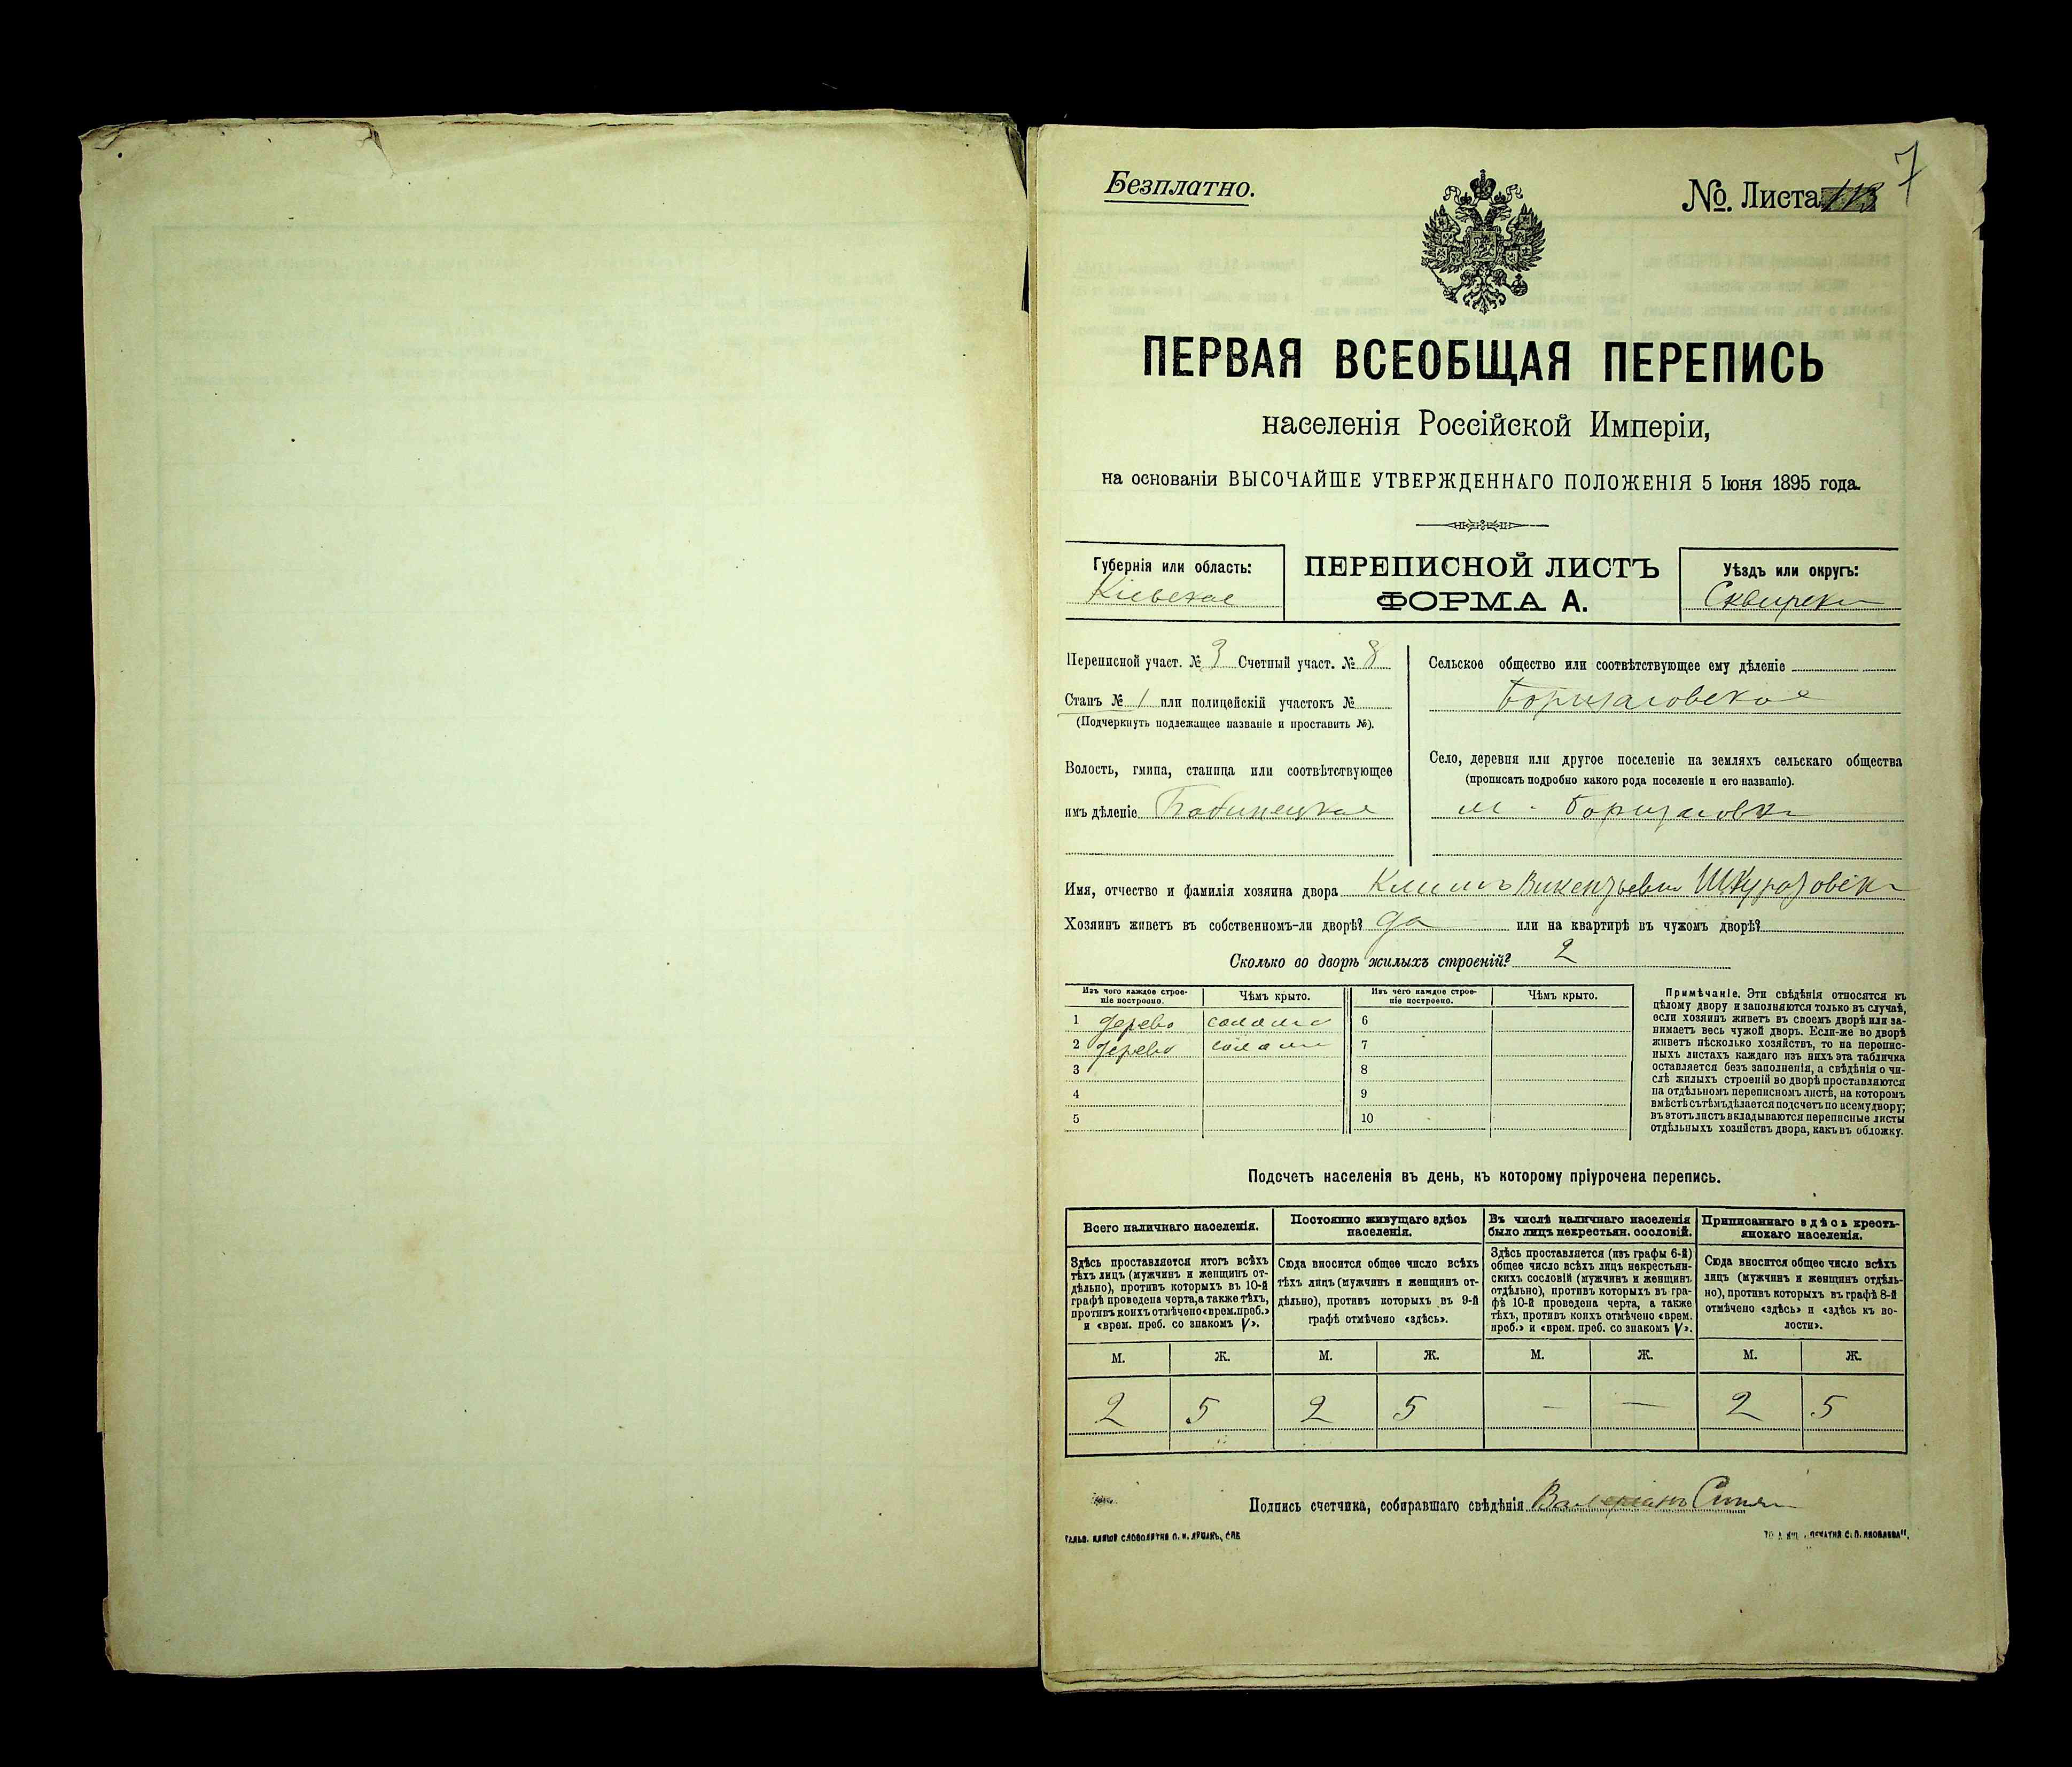 Безплатно.
№. Листа 113 7
ПЕРВАЯ ВСЕОБЩАЯ ПЕРЕПИСЬ
населенія Россійской Имперіи,
на основаніи ВЫСОЧАЙШЕ УТВЕРЖДЕННАГО ПОЛОЖЕНІЯ 5 Іюня 1895 года.
Губернія или область:
Кіевская
ПЕРЕПИСНОЙ ЛИСТЪ
ФОРМА А.
Уѣздъ или округъ:
Сквирскій
Переписной участ. № 3 Счетный участ. № 8
Станъ № 1 или полицейскій участокъ №
(Подчеркнуть подлежащее названіе и проставить №).
Волость, гмина, станица или соотвѣтствующее
имъ дѣленіе
Сельское общество или соотвѣтствующее ему дѣленіе
Село, деревня или другое поселеніе на земляхъ сельскаго общества
(прописать подробно какого рода поселеніе и его названіе).
м.
Имя, отчество и фамилія хозяина двора Климъ Викентьевъ
Хозяинъ живетъ въ собственномъ-ли дворѣ? да или на квартирѣ въ чужомъ дворѣ?
Сколько во дворѣ жилыхъ строеній? 2
Изъ чего каждое строе-
ніе построено.
Чѣмъ крыто.
Изъ чего каждое строе-
ніе построено.
Чѣмъ крыто.
1 дерево солома 6
2 дерево солома 7
3 8
4 9
5 10
Примѣчаніе. Эти свѣдѣнія относятся къ
цѣлому двору и заполняются только въ случаѣ,
если хозяинъ живетъ въ своемъ дворѣ или за-
нимаетъ весь чужой дворъ. Если-же во дворѣ
живетъ нѣсколько хозяйствъ, то на перепис-
ныхъ листахъ каждаго изъ нихъ эта табличка
оставляется безъ заполненія, а свѣдѣнія о чи-
слѣ жилыхъ строеній во дворѣ проставляются
на отдѣльномъ переписномъ листѣ, на которомъ
вмѣстѣ съ тѣмъ дѣлается подсчетъ по всему двору;
въ этотъ листъ вкладываются переписные листы
отдѣльныхъ хозяйствъ двора, какъ въ обложку.
Подсчетъ населенія въ день, къ которому пріурочена перепись.
Всего наличнаго населенія.
Здѣсь проставляется итогъ всѣхъ
тѣхъ лицъ (мужчинъ и женщинъ от-
дѣльно), противъ которыхъ въ 10-й
графѣ проведена черта, а также тѣхъ,
противъ коихъ отмѣчено «врем. преб.»
и «врем. преб. со знакомъ V».
Постоянно живущаго здѣсь
населенія.
Сюда вносится общее число всѣхъ
тѣхъ лицъ (мужчинъ и женщинъ от-
дѣльно), противъ которыхъ въ 9-й
графѣ отмѣчено «здѣсь».
Въ числѣ наличнаго населенія
было лицъ некрестьян. сословій.
Здѣсь проставляется (изъ графы 6-й)
общее число всѣхъ лицъ некрестьян-
скихъ сословій (мужчинъ и женщинъ
отдѣльно), противъ которыхъ въ гра-
фѣ 10-й проведена черта, а также
тѣхъ, противъ коихъ отмѣчено «врем.
преб.» и «врем. преб. со знакомъ V».
Приписаннаго здѣсь кресть-
янскаго населенія.
Сюда вносится общее число всѣхъ
лицъ (мужчинъ и женщинъ отдѣль-
но), противъ которыхъ въ графѣ 8-й
отмѣчено «здѣсь» и «здѣсь къ во-
лости».
М. Ж. М. Ж. М. Ж. М. Ж.
2 5 2 5 — — 2 5
Подпись счетчика, собиравшаго свѣдѣнія Валеріанъ